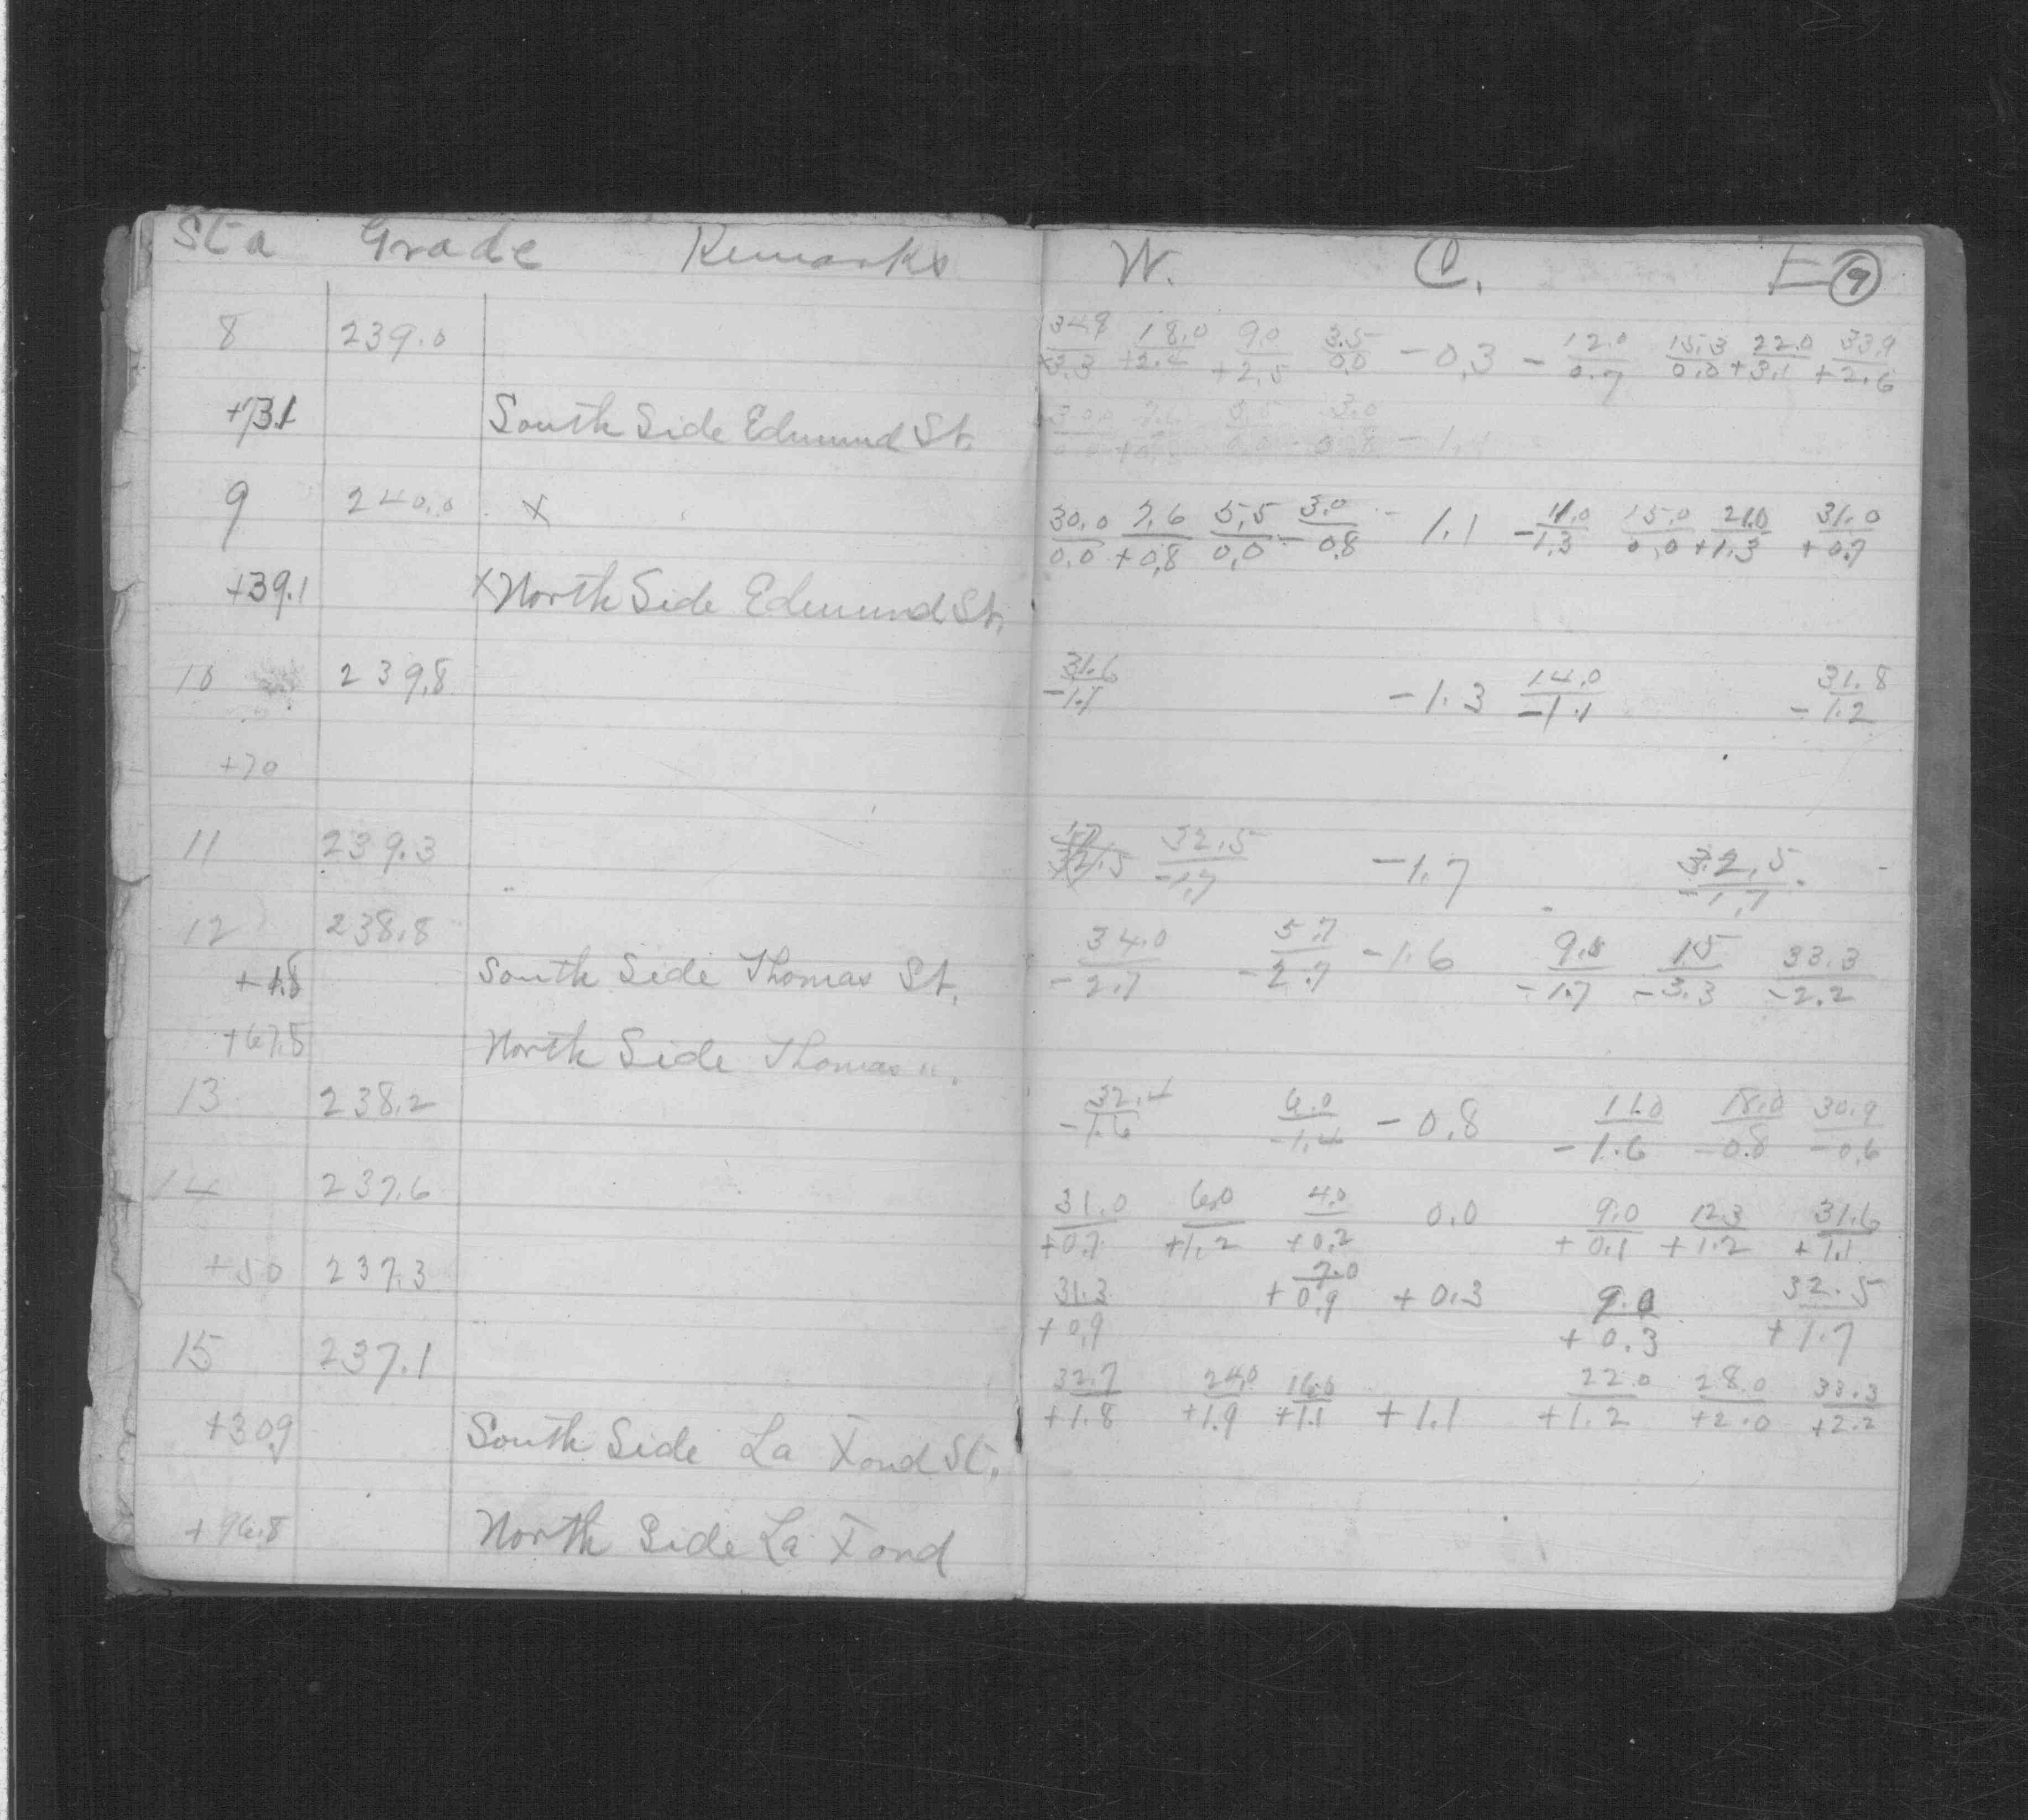 Sta Grade Remarks W. C. E 9
8 239.0 34.8/+3.3 18.0/+2.4 9.0/+2.5 3.5/0.0 -0.3 -12.0/0.7 15.3/0.0 22.0/+3.1 33.9/+2.6
+73.1 South Side Edmund St.
9 240.0 x 30.0/0.0 7.6/+0.8 5.5/0.0 3.0/-0.8 -1.1 11.0/-1.3 15.0/0.0 21.0/+1.3 31.0/+0.7
+39.1 x North Side Edmund St.
10 239.8 31.6/-1.1 -1.3 14.0/-1.1 31.8/-1.2
+70
11 239.3 32.5/-1.7 -1.7 32.5/-1.7
12 238.8 34.0/-2.7 5.7/-2.7 -1.6 9.5/-1.7 15/-3.3 33.3/-2.2
+1.8 South Side Thomas St.
+67.8 North Side Thomas ".
13 238.2 32.4/-1.6 6.0/-1.4 -0.8 11.0/-1.6 18.0/-0.8 30.9/-0.6
14 237.6 31.0/+0.7 6.0/+1.2 4.0/+0.2 0.0 9.0/+0.1 12.3/+1.2 31.6/+1.1
+50 237.3 31.3/+0.9 7.0/+0.9 +0.3 9.0/+0.3 32.5/+1.7
15 237.1 32.7/+1.8 24.0/+1.9 16.0/+1.1 +1.1 22.0/+1.2 28.0/+2.0 33.3/+2.2
+30.9 South Side La Fond St.
+96.8 North Side La Fond